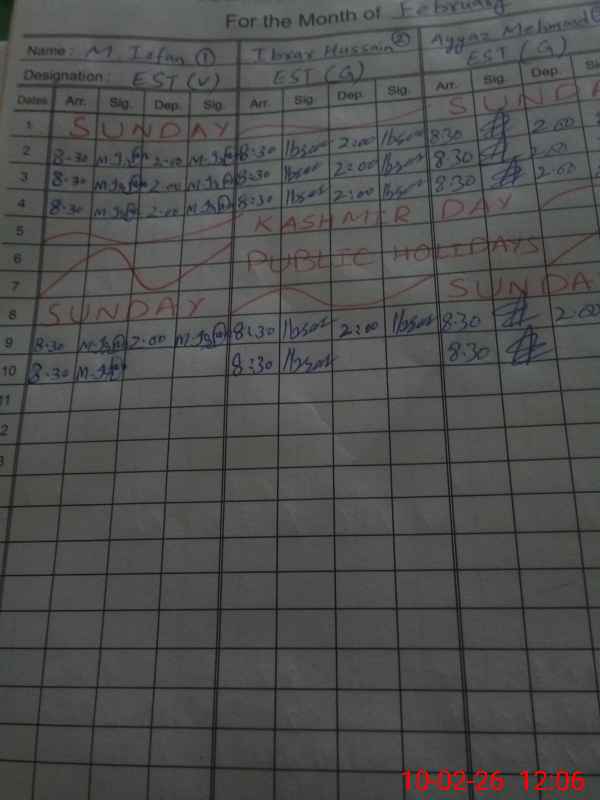 For the Month of February
Name: M. Irfan ① Ibrar Hussain ② Ayyaz Mehmood
Designation: EST (V) EST (G) EST (G)
Dates Arr. Sig. Dep. Sig. Arr. Sig. Dep. Sig. Arr. Sig. Dep.
1 SUNDAY SUNDA
2 8-30 M.Irfan 2-00 M.Irfan 8:30 Ibrar 2:00 Ibrar 8.30 2.00
3 8-30 M.Irfan 2-00 M.Irfan 8:30 Ibrar 2:00 Ibrar 8.30 2.00
4 8-30 M.Irfan 2-00 M.Irfan 8:30 Ibrar 2:00 Ibrar 8.30 2.00
5 KASHMIR DAY
6 PUBLIC HOLIDAYS
7
8 SUNDAY SUNDA
9 8-30 M.Irfan 2-00 M.Irfan 8:30 Ibrar 2:00 Ibrar 8.30 2.00
10 8-30 M.Irfan 8:30 Ibrar 8.30
11
2
3
10-02-26 12:06